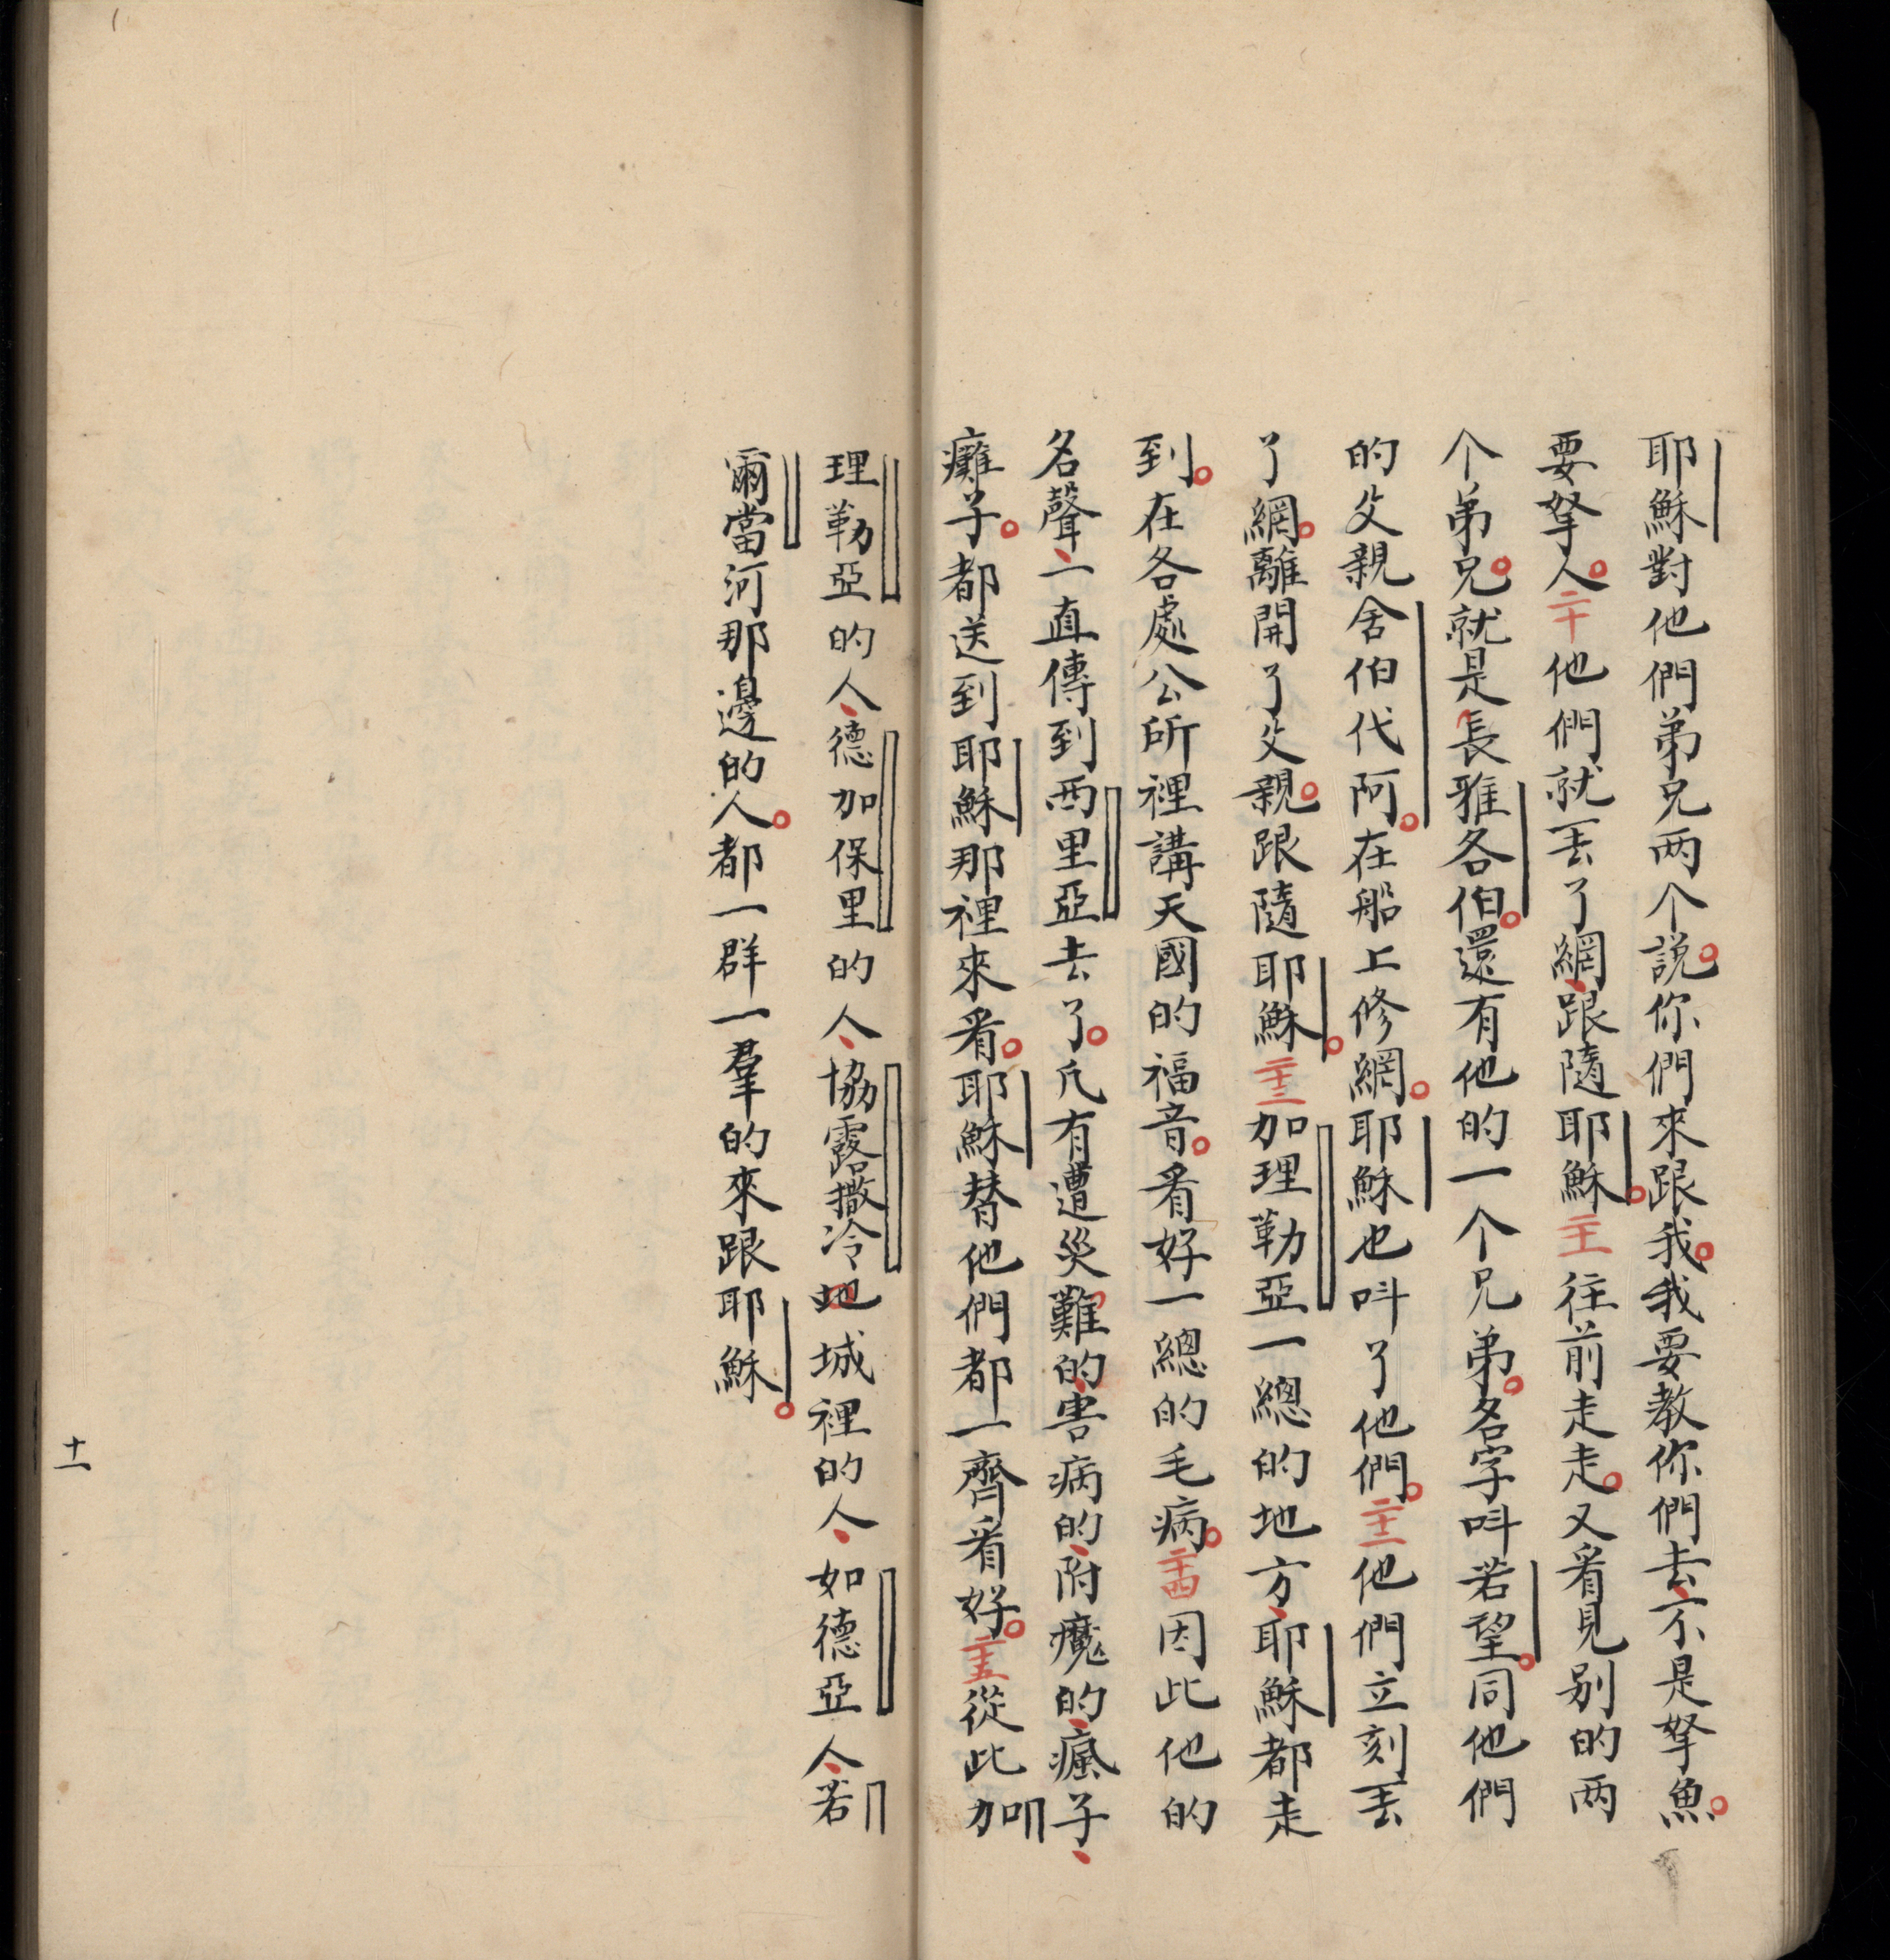 耶穌對他們弟兄两个説。你們來跟我。我要教你們去、不是拏魚。
要拏人。二十他們就丟了網、跟隨耶穌。二十一往前走走。又看見别的两
个弟兄。就是、長雅各伯。還有他的一个兄弟。名字呌若望。同他們
的父親舍伯代阿。在船上修網。耶穌也呌了他們。二十二他們立刻丟
了網。離開了父親。跟隨耶穌。二十三加理勒亞一總的地方、耶穌都走
到。在各處公所裡講天國的福音。看好一總的毛病。二十四因此他的
名聲、一直傳到西里亞去了。凡有遭災難的、害病的、附魔的、瘋子、
癱子。都送到耶穌那裡來看。耶穌替他們都一齊看好。二十五從此加
理勒亞的人、德加保里的人、協露撒冷地城裡的人、如德亞人、若
爾當河那邊的人。都一群一羣的來跟耶穌。
十一